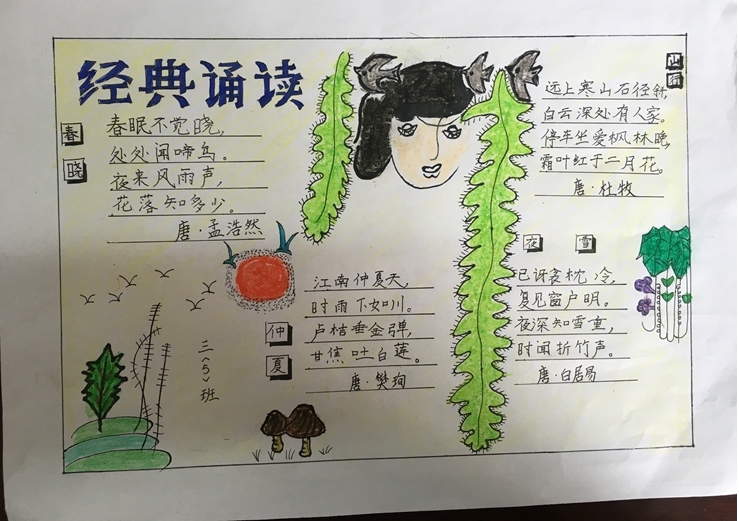 经典诵读
春晓
春眠不觉晓,
处处闻啼鸟。
夜来风雨声,
花落知多少。
唐·孟浩然
山行
远上寒山石径斜,
白云深处有人家。
停车坐爱枫林晚,
霜叶红于二月花。
唐·杜牧
仲夏
江南仲夏天,
时雨下如川。
卢桔垂金弹,
甘焦吐白莲。
唐·樊珣
夜雪
已讶衾枕冷,
复见窗户明。
夜深知雪重,
时闻折竹声。
唐·白居易
三(5)班